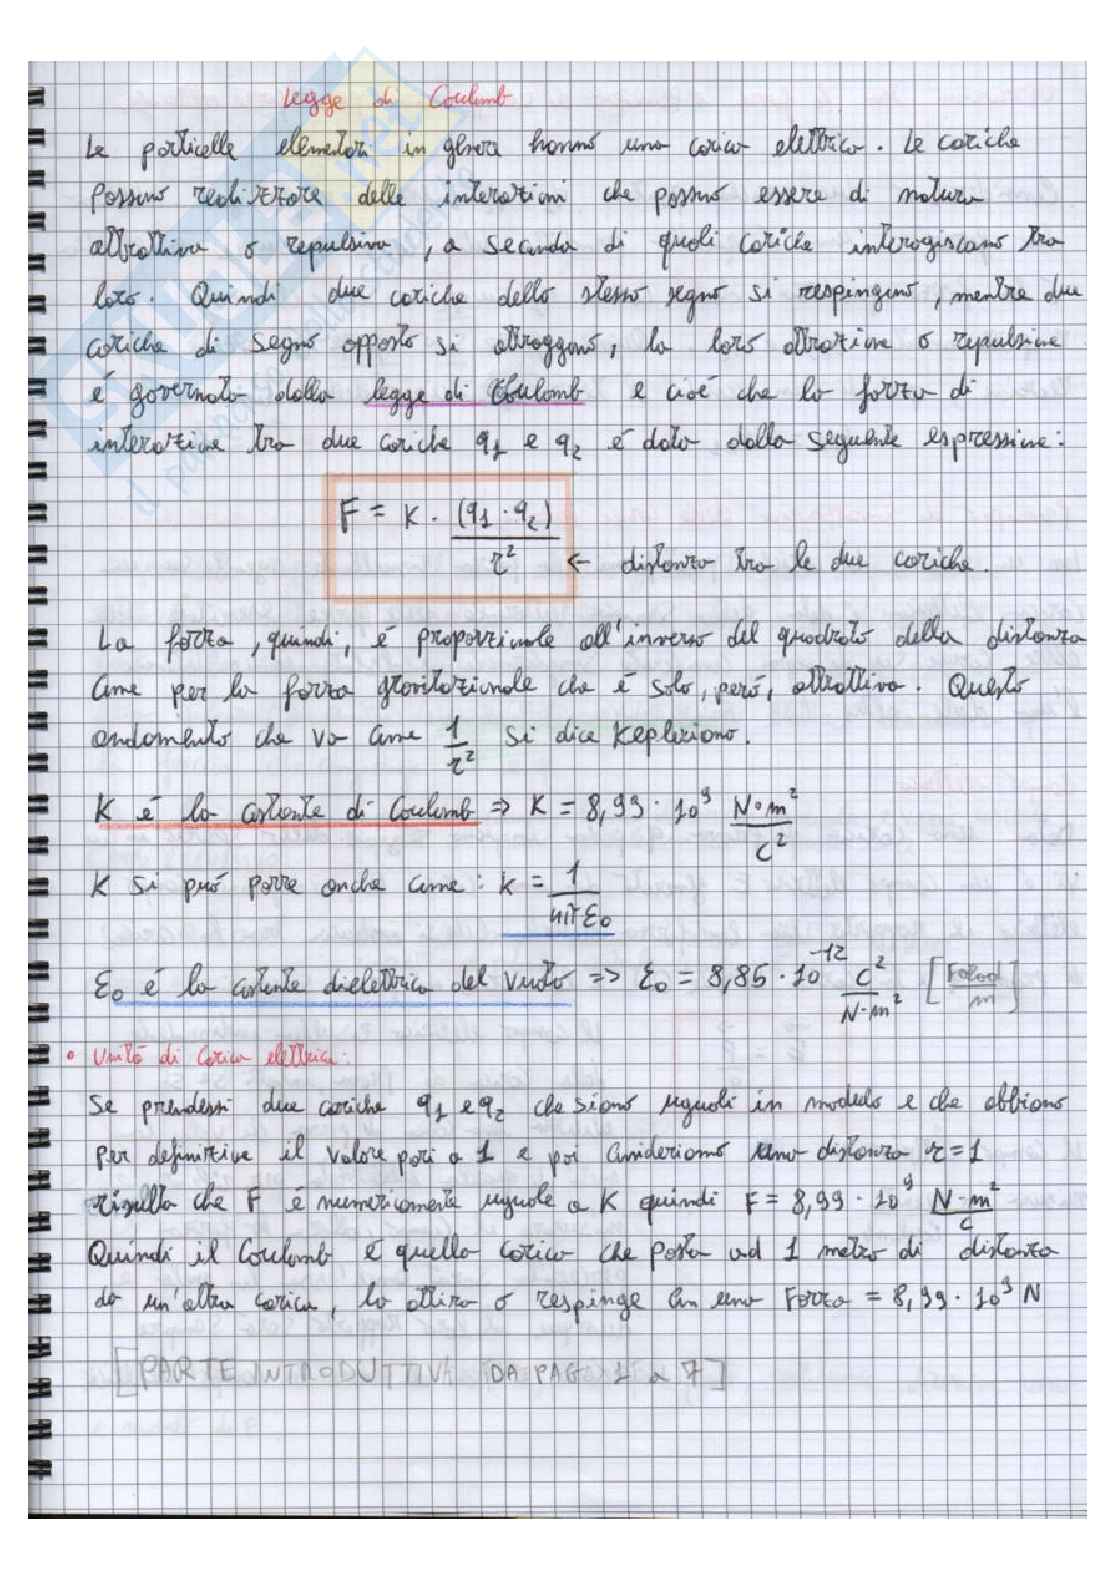 Legge di Coulomb
Le particelle elementari in genere hanno una carica elettrica. Le cariche
possono realizzare delle interazioni che possono essere di natura
attrattiva o repulsiva, a seconda di quali cariche interagiscano tra
loro. Quindi due cariche dello stesso segno si respingono, mentre due
cariche di segno opposto si attraggono, la loro attrazione o repulsione
é governata dalla legge di Coulomb e cioé che la forza di
interazione tra due cariche q₁ e q₂ é data dalla seguente espressione:
F = K · (q₁ · q₂) / r² ← distanza tra le due cariche.
La forza, quindi, é proporzionale all'inverso del quadrato della distanza
come per la forza gravitazionale che é solo, peró, attrattiva. Questo
andamento che va come 1/r² si dice Kepleriano.
K é la costante di Coulomb ⇒ K = 8,99 · 10⁹ N·m²/C²
K si puó porre anche come: k = 1/4πε₀
ε₀ é la costante dielettrica del vuoto ⇒ ε₀ = 8,85 · 10⁻¹² C²/N·m² [Farad/m]
• Unitá di carica elettrica:
Se prendessi due cariche q₁ e q₂ che siano uguali in modulo e che abbiano
per definizione il valore pari a 1 e poi consideriamo una distanza r = 1
risulta che F é numericamente uguale a K quindi F = 8,99 · 10⁹ N·m²/C
Quindi il Coulomb é quella carica che posta ad 1 metro di distanza
da un'altra carica, la attira o respinge con una Forza = 8,99 · 10⁹ N
[PARTE INTRODUTTIVA DA PAG 1 a 7]